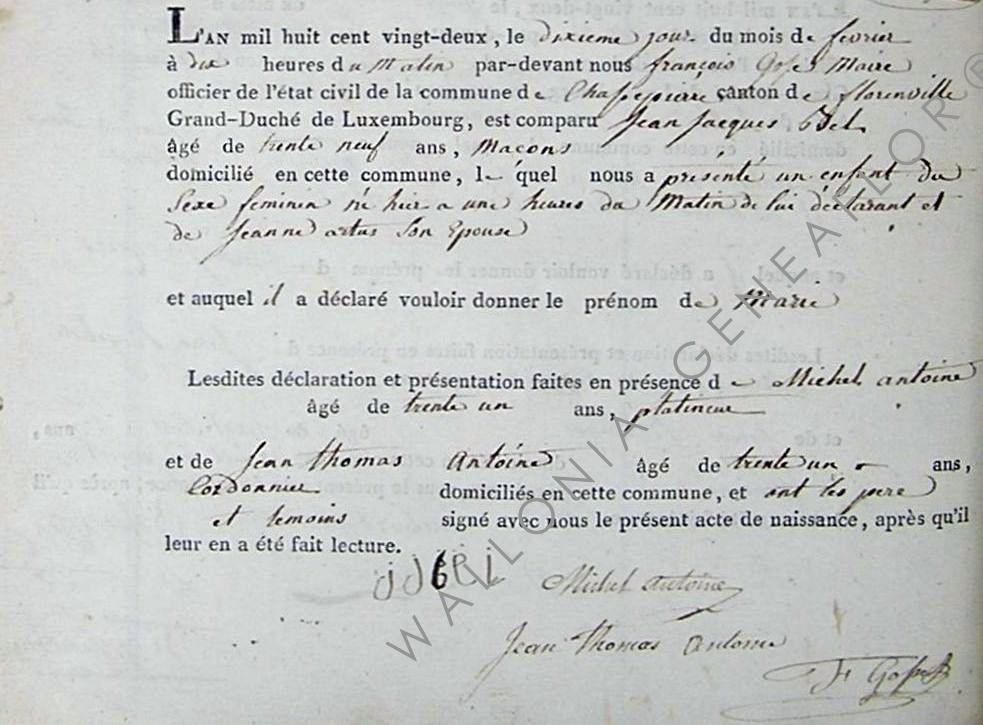 L'AN mil huit cent vingt-deux, le dixieme jour du mois de fevrier
à dix heures du Matin par-devant nous françois Gofse Maire
officier de l'état civil de la commune de Chassepierre canton de florenville
Grand-Duché de Luxembourg, est comparu Jean Jacques
âgé de trente neuf ans, Macons
domicilié en cette commune, le quel nous a présenté un enfant du
Sexe feminin né hier a une heures du Matin de lui déclarant et
de Jeanne artus Son Epouse
et auquel il a déclaré vouloir donner le prénom de Marie
Lesdites déclaration et présentation faites en présence de Michel antoine
âgé de trente un ans, platineur
et de Jean thomas Antoine âgé de trente un ans,
Cordonnier domiciliés en cette commune, et ont les pere
et temoins signé avec nous le présent acte de naissance, après qu'il
leur en a été fait lecture.
Michel antoine
Jean thomas antoine
WALLONIA GENEA FLOR®